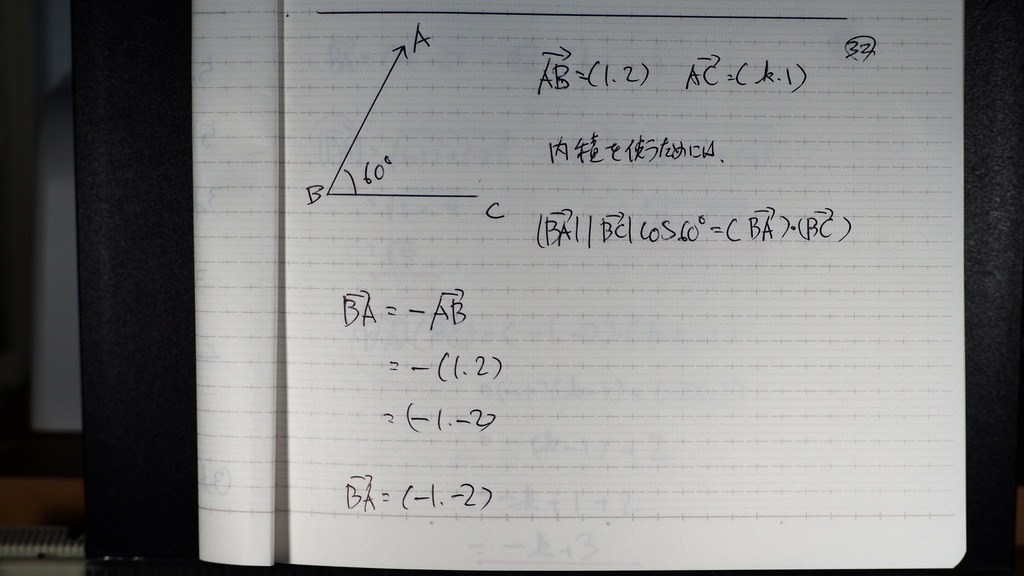 A
60°
B
C
㉝
→AB=(1.2) →AC=(k.1)
内積を使うためには、
|→BA||→BC|cos60°=(→BA)・(→BC)
→BA=-→AB
=-(1.2)
=(-1.-2)
→BA=(-1.-2)